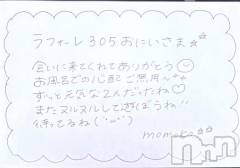 ラフォーレ305おにいさま☆☆
会いに来てくれてありがとう
お風呂での心配ご無用〜
ずっと元気な2人だったね♡
またヌルヌルして遊ぼうね!!
待ってるね(˙꒳˙)
momoka